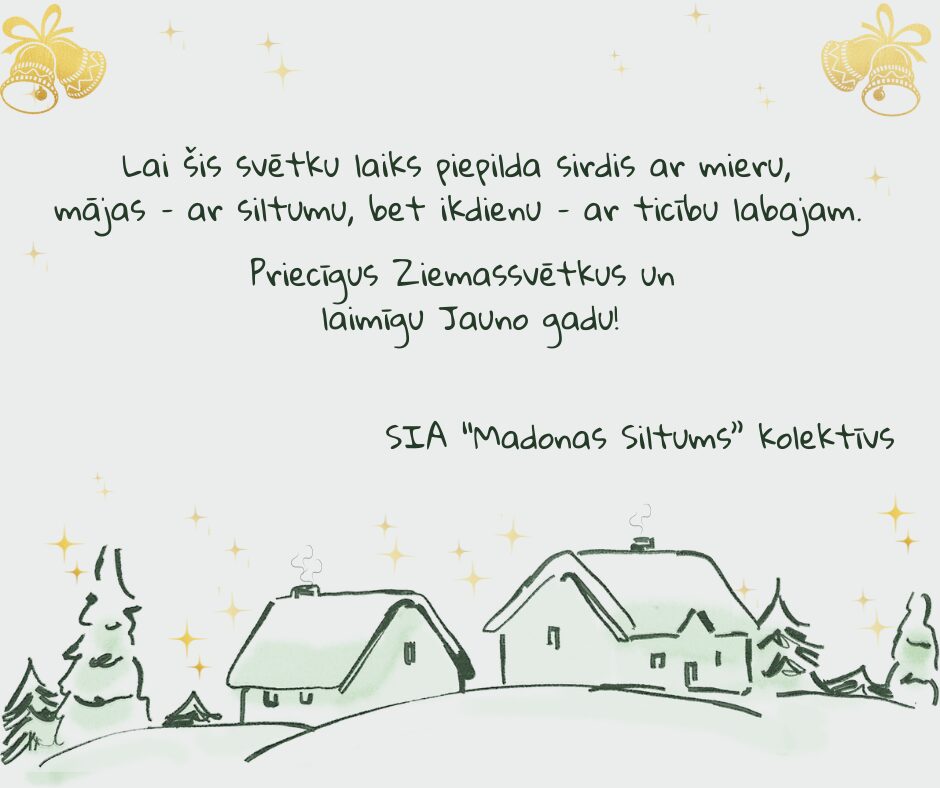 Lai šis svētku laiks piepilda sirdis ar mieru,
mājas - ar siltumu, bet ikdienu - ar ticību labajam.
Priecīgus Ziemassvētkus un
laimīgu Jauno gadu!
SIA "Madonas Siltums” kolektīvs